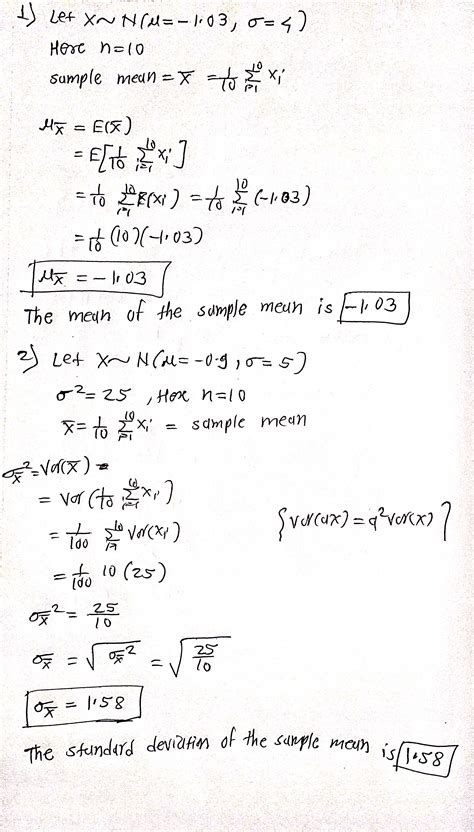 1) Let X~ N(μ=-1.03, σ=4)
Here n=10
sample mean = x̄ = 1/10 Σ_{i=1}^{10} xi
μx̄ = E(x̄)
= E[1/10 Σ_{i=1}^{10} xi]
= 1/10 Σ_{i=1}^{10} E(xi) = 1/10 Σ_{i=1}^{10} (-1.03)
= 1/10 (10)(-1.03)
μx̄ = -1.03
The mean of the sample mean is -1.03
2) Let X~ N(μ=-0.9, σ=5)
σ²=25 , Here n=10
x̄ = 1/10 Σ_{i=1}^{10} xi = sample mean
σx̄² = Var(x̄) =
= Var(1/10 Σ_{i=1}^{10} xi)
= 1/100 Σ_{i=1}^{10} Var(xi) {Var(ax) = a² Var(x)}
= 1/100 10 (25)
σx̄² = 25/10
σx̄ = √σx̄² = √25/10
σx̄ = 1.58
The standard deviation of the sample mean is 1.58